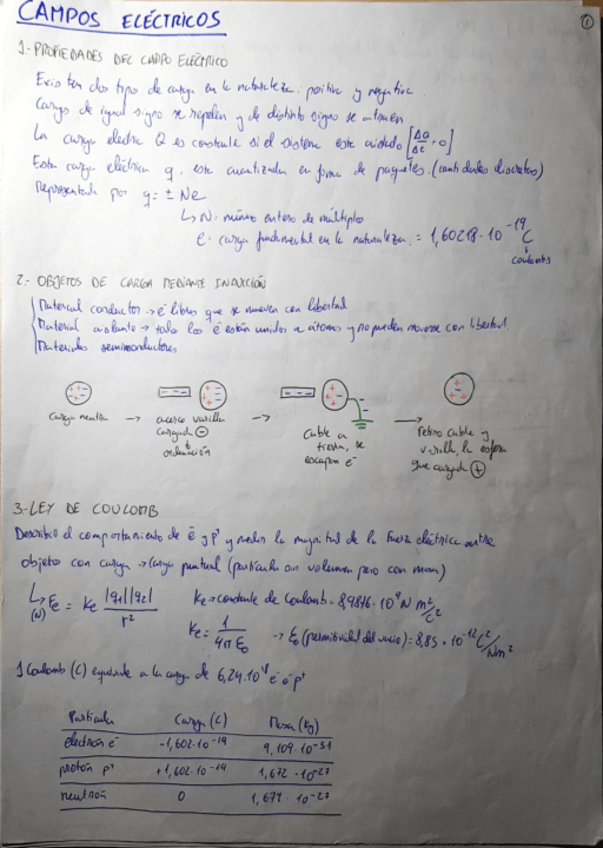 CAMPOS ELÉCTRICOS
1
1.- PROPIEDADES DEL CAMPO ELÉCTRICO
Existen dos tipos de carga en la naturaleza: positiva y negativa.
Cargas de igual signo se repelen y de distinto signo se atraen
La carga eléctrica Q es constante si el sistema está aislado [ΔQ/Δt = 0]
Esta carga eléctrica q, está cuantizada en forma de paquetes. (cantidades discretas)
Representada por q = ± Ne
↳ N: número entero de múltiplo
e: carga fundamental en la naturaleza = 1,60218·10⁻¹⁹ C
coulombs
2.- OBJETOS DE CARGA MEDIANTE INDUCCIÓN
Material conductor → e⁻ libres que se mueven con libertad
Material aislante → todos los e⁻ están unidos a átomos y no pueden moverse con libertad.
Materiales semiconductores
carga neutra → acerco varilla cargada ⊖ + ordenación → Cable a tierra, se escapan e⁻ → retiro cable y varilla, la esfera que cargada ⊕
3.- LEY DE COULOMB
Describió el comportamiento de e⁻ y p⁺ y medir la magnitud de la fuerza eléctrica entre
objetos con carga → carga puntual (partícula sin volumen pero con masa)
↳ Fe = Ke |q1||q2| / r²
(N)
Ke → constante de Coulomb = 8,9876·10⁹ N m²/C²
Ke = 1 / 4π ε₀ → ε₀ (permitividad del vacío) = 8,85·10⁻¹² C²/Nm²
1 Coulomb (C) equivale a la carga de 6,24·10¹⁸ e⁻ ó p⁺
Partícula Carga (C) Masa (Kg)
electrón e⁻ -1,602·10⁻¹⁹ 9,109·10⁻³¹
protón p⁺ +1,602·10⁻¹⁹ 1,672·10⁻²⁷
neutrón 0 1,674·10⁻²⁷